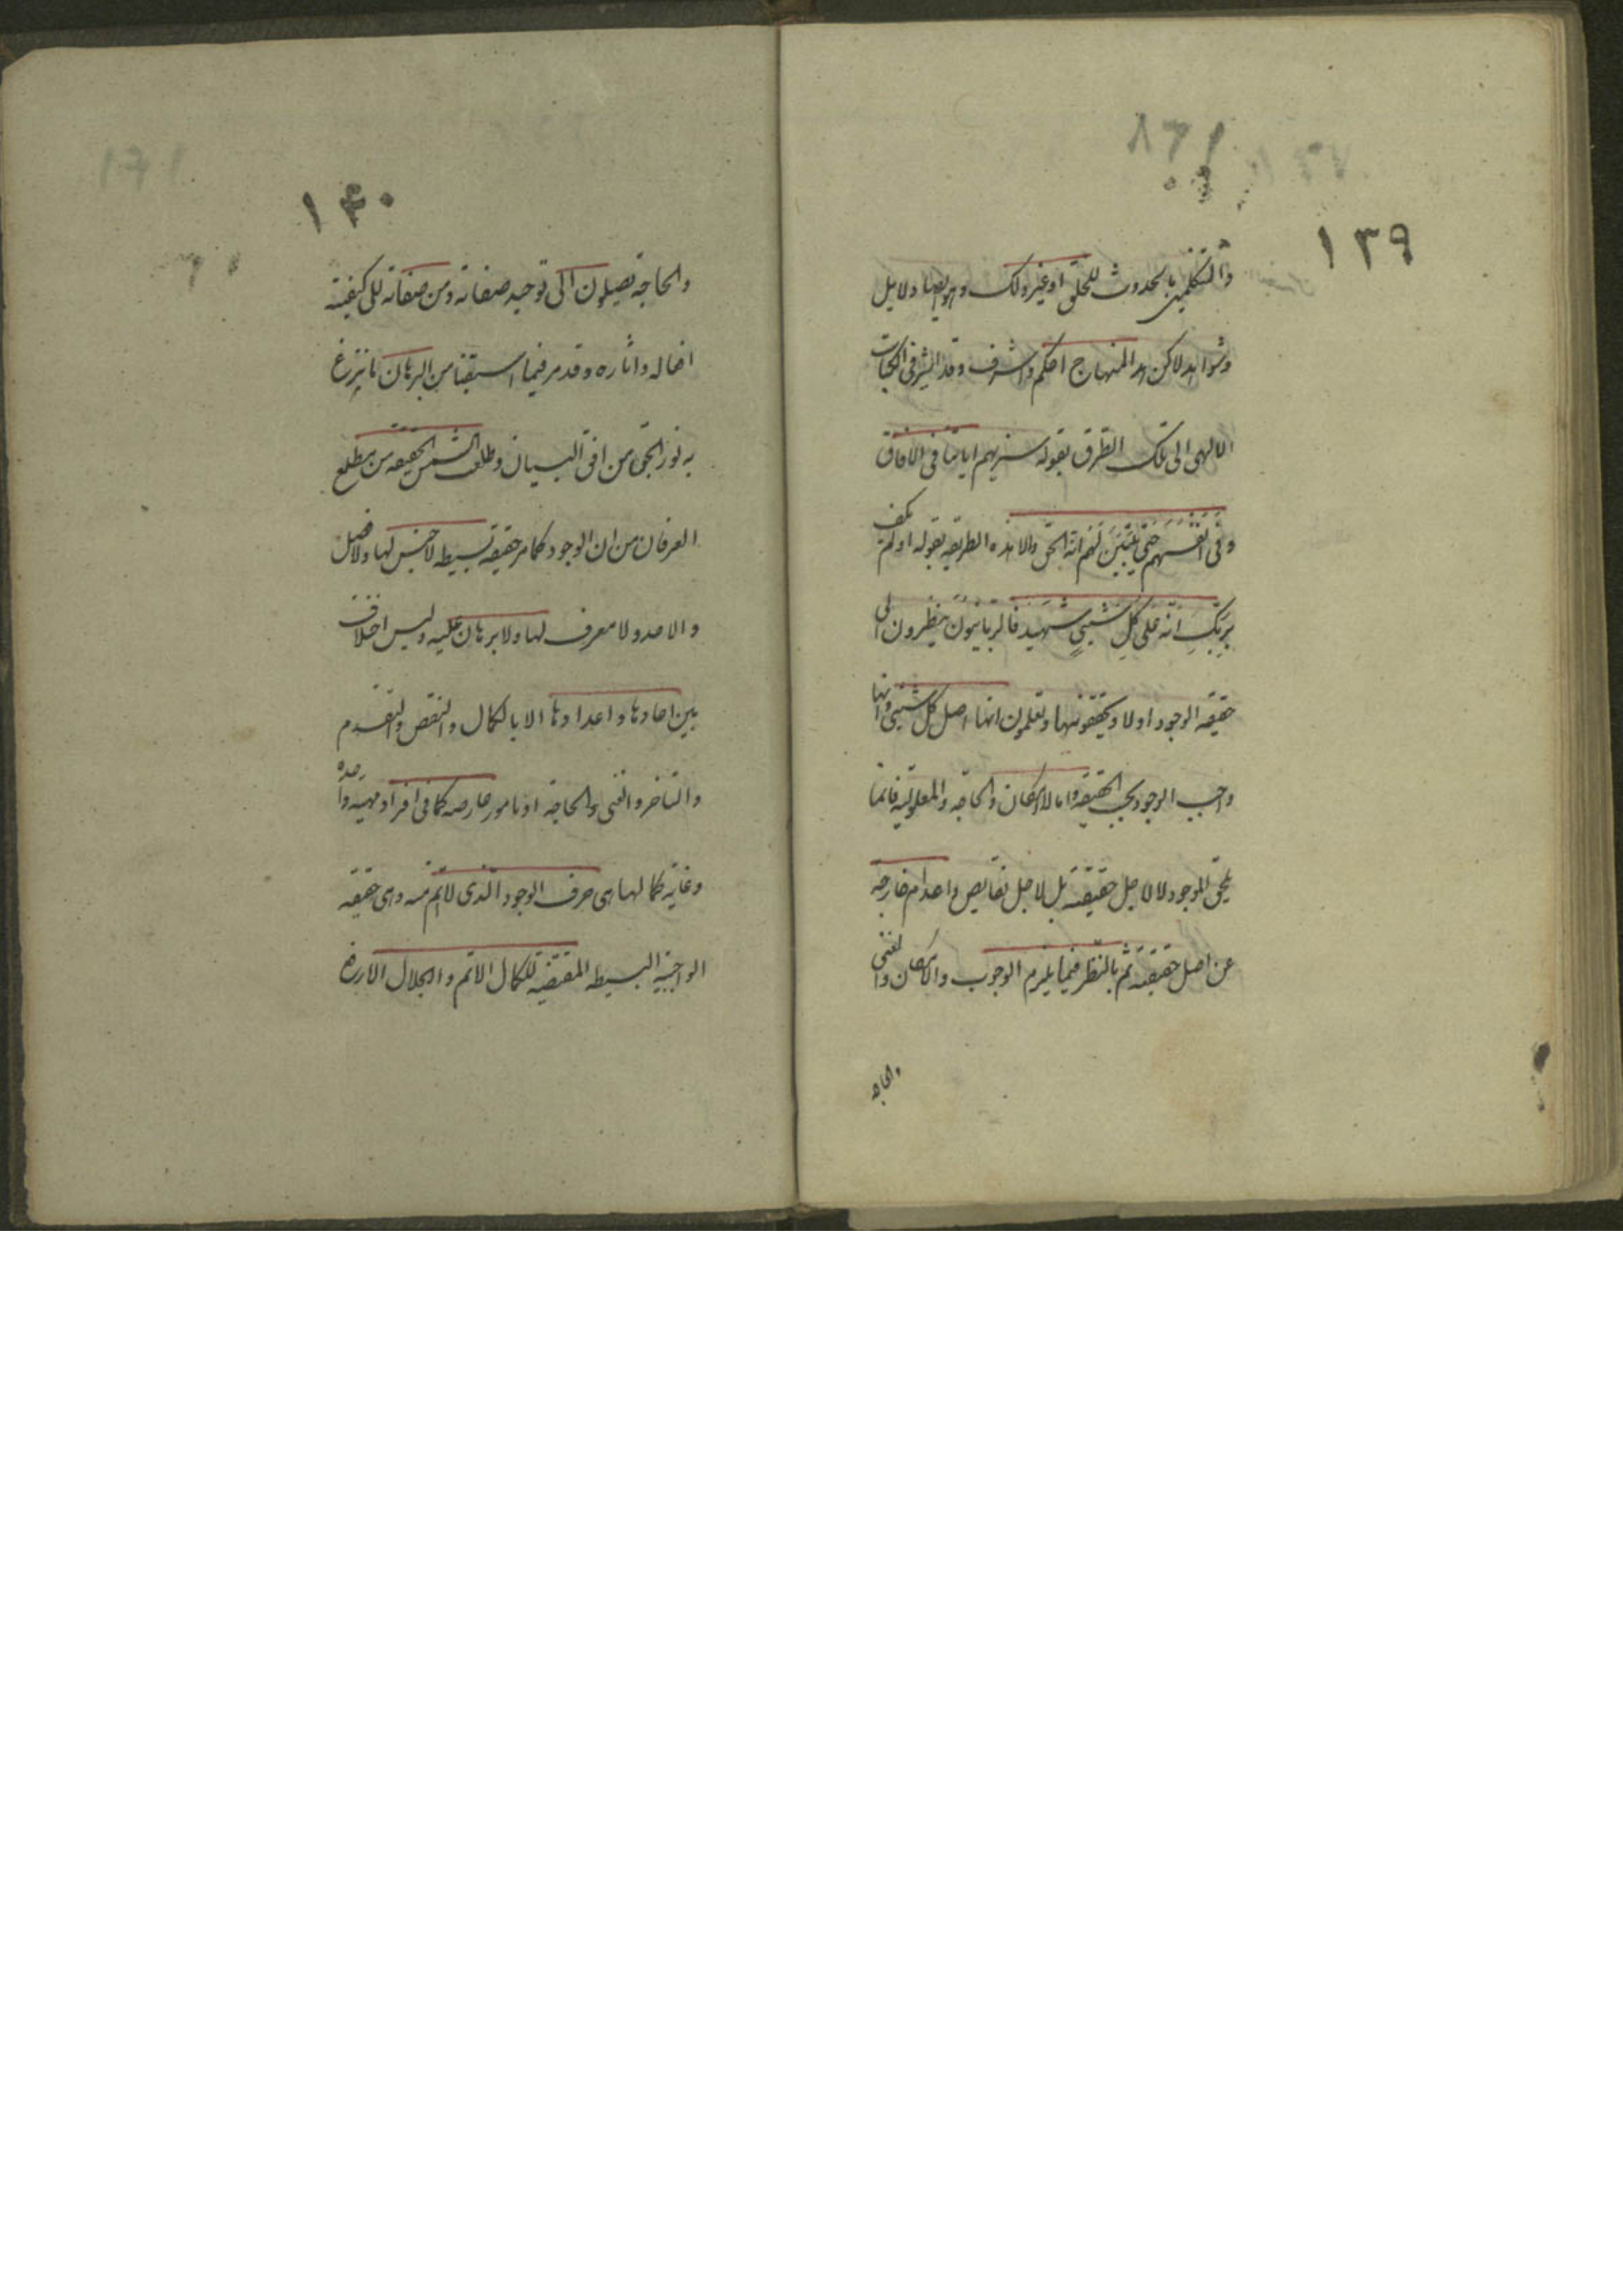 ١٣٩
والمتكلمين بالحدوث للخلق او غير ذلك وهى ايضا دلايل
وشواهد لاكن هذا المنهاج احكم واشرف وقد اشير فى الكتاب
الالهى الى تلك الطرق بقوله سنريهم اياتنا فى الافاق
وَفى اَنفُسِهِم حَتّى يَتَبَيَّنَ لَهُم اَنَّهُ الحَق والا هذه الطريقه بقوله اولم يكف
بِرَبِّكَ اَنَّه عَلى كُلِ شَيئٍ شَهيد فالربانيون ينظرون الى
حقيقه الوجود اولا ويحققونها ويعلمون انها اصل كل شيئى وانها
واجب الوجود بحسب الحقيقه واما الامكان والحاجه والمعلوليه فانما
يلحق الوجود لا لاجل حقيقته بل لاجل نقايص واعدام خارجه
عن اصل حقيقته ثم بالنظر فيما يلزم الوجوب والامكان والغنى
والحاجه
١۴٠
والحاجة يصلون الى توحيد صفاته ومن صفاته الى كيفية
افعاله واثاره وقد مر فيما اسبقنا من البرهان ما يبزغ
به نور الحق من افق البيان وطلعت الشمس الحقيقه من مطلع
العرفان من ان الوجود كما مر حقيقه بسيطه لا جنس لها ولا فصل
والا حد ولا معرف لها ولا برهان عليه وليس اختلاف
بين احادها واعدادها الا بالكمال والنقص والتقدم
والتاخر والغنى والحاجة او بامور عارضه كما فى افراد مهيه واحده
وغاية كمالها هى صرف الوجود الذى لا اتم منه وهى حقيقه
الواجبية البسيطه المقتضيه للكمال الاتم والجلال الارفع